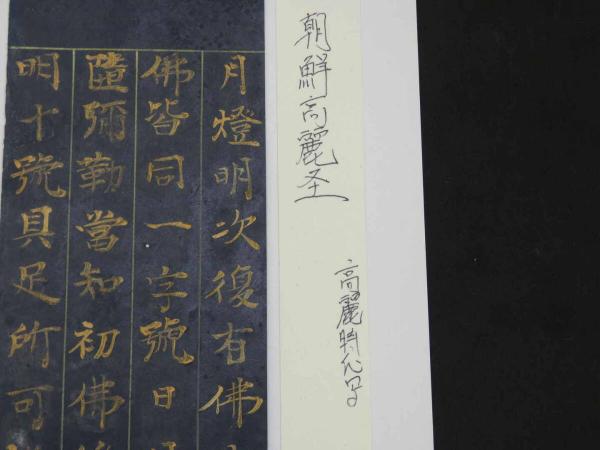 朝鮮高麗圣
高麗時代写
月燈明次復有佛
佛皆同一字號日
墮彌勒當知初佛
明十號具足所可